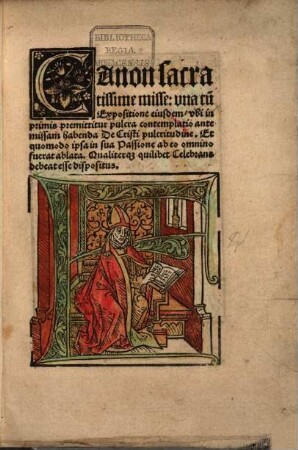 BIBLIOTHECA
REGIA
MONACENSIS
Canon sacra
tissime misse: vna cū
Expositione eiusdem/ vbi in
primis premittitur pulcra contemplatio ante
missam habenda De Cristi pulcritudine. Et
quomodo ipsa in sua Passione ab eo omnino
fuerat ablata. Qualiterqȝ quilibet Celebrans
debeat esse dispositus.